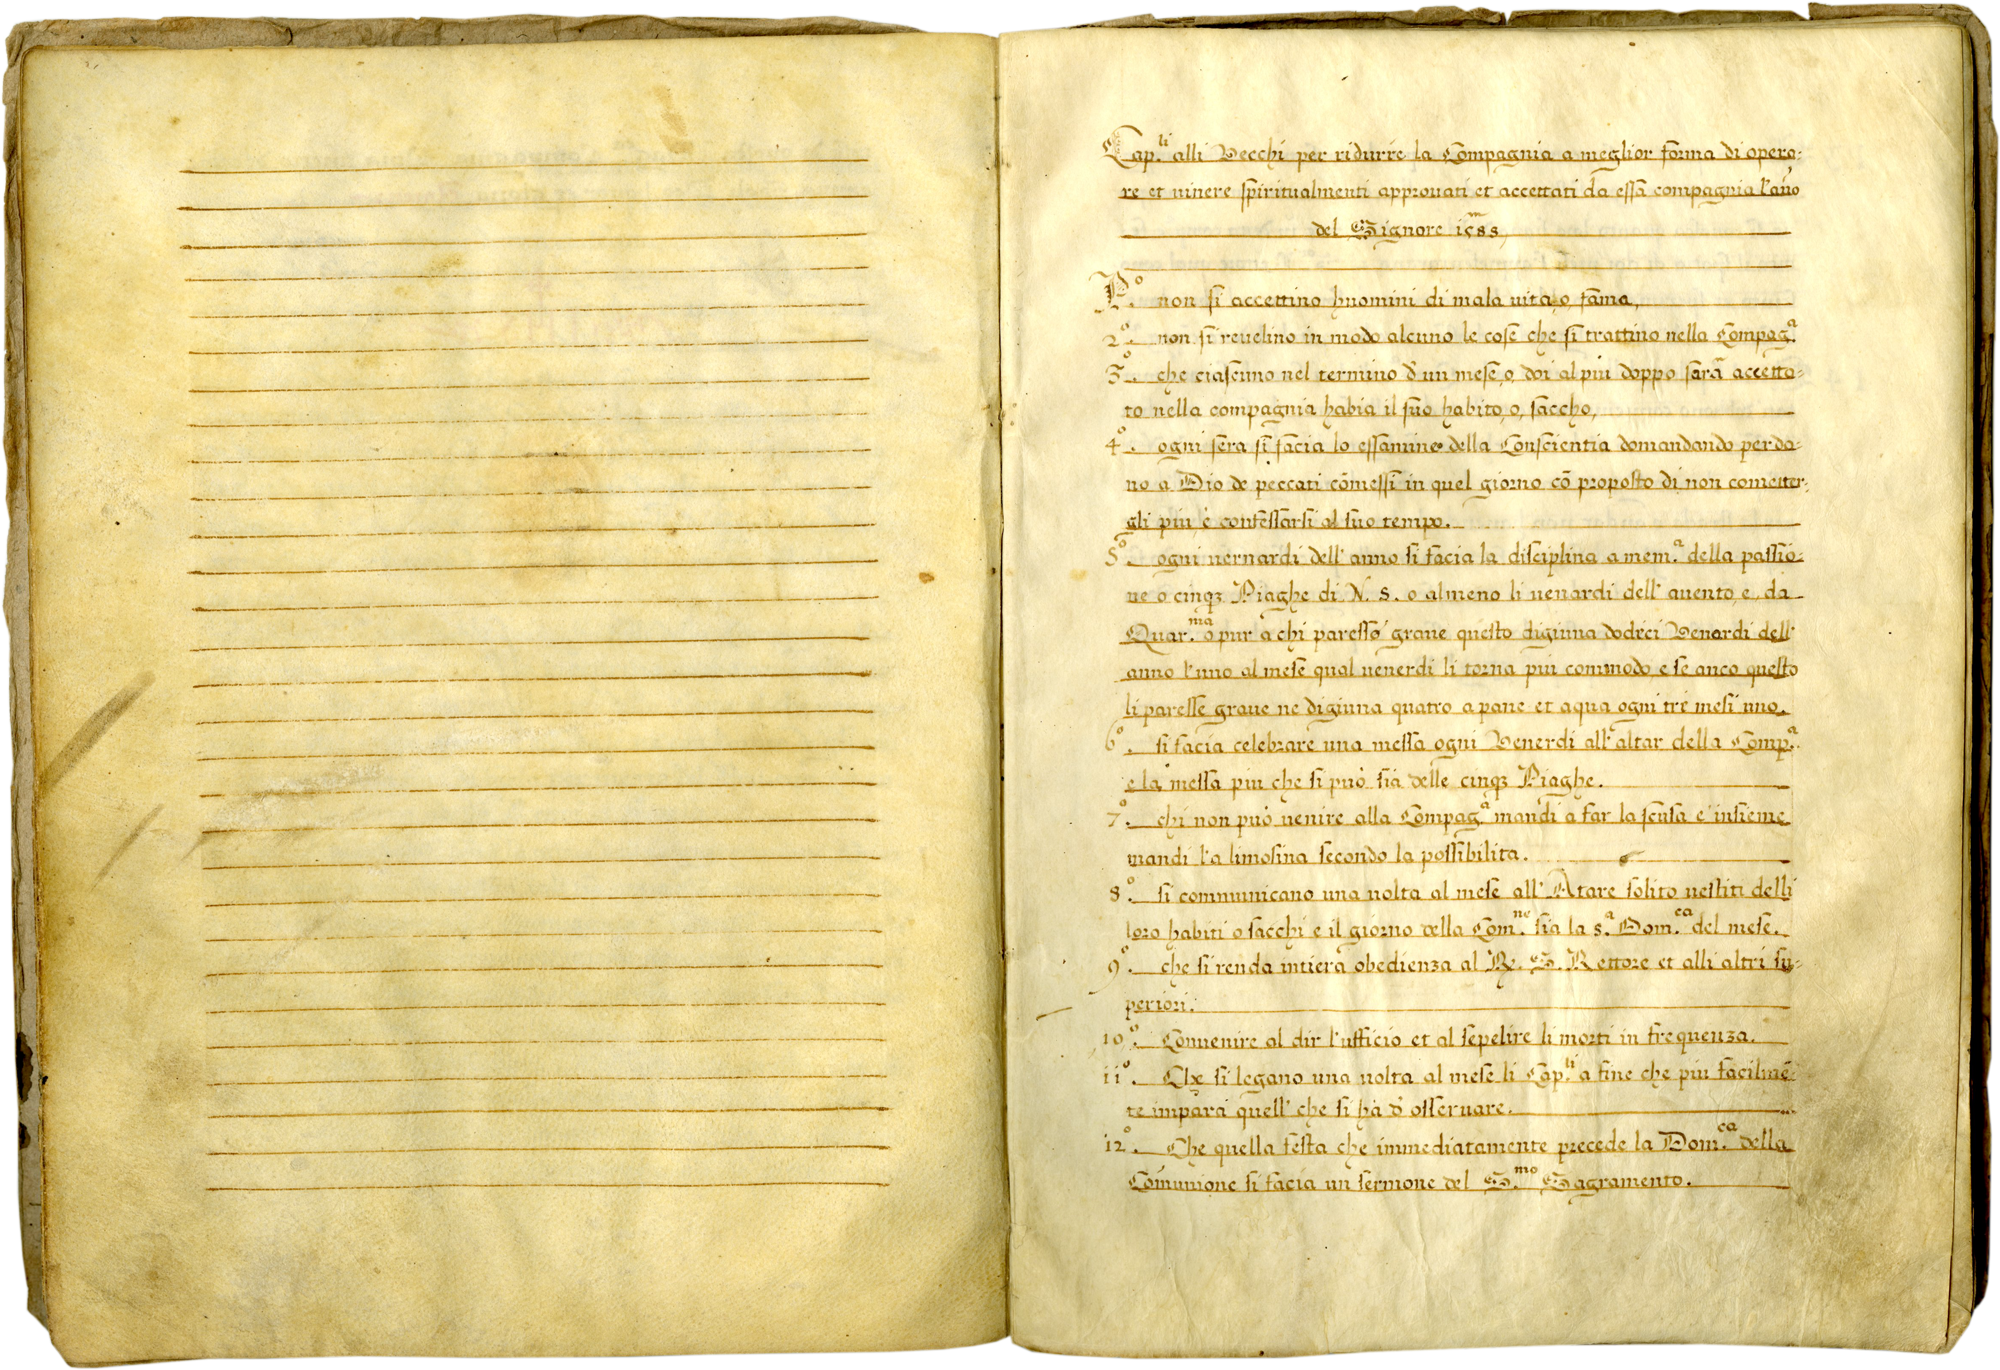 Cap.li alli Vecchi per ridurre la Compagnia a meglior forma di opera-
re et uiuere spiritualmenti approuati et accettati da essa compagnia l'año
del Signore 1588
P.o non si accettino huomini di mala uita, o, fama,
2o. non si reuelino in modo alcuno le cose che si trattino nella Compag.a
3o. che ciascuno nel termino d'un mese, o, doi al piu doppo sarà accetta-
to nella compagnia habia il suo habito, o, saccho,
4o. ogni sera si facia lo essamine della Conscientia domandando perdo-
no a Dio de peccati cōmessi in quel giorno cō proposto di non cometter-
gli piu, è confessarsi al suo tempo.
5o. ogni uernardi dell'anno si facia la disciplina a mem.a della passio-
ne o cinqz Piaghe di N. S. o almeno li uenardi dell'auento, e, da
Quar.ma o pur a chi paresse graue questo digiuna dodeci Venardi dell'
anno l'uno al mese qual uenerdi li torna piu commodo e se anco questo
li paresse graue ne digiuna quatro a pane et aqua ogni tre mesi uno.
6o. si facia celebrare una messa ogni Venerdi all'altar della Comp.a
e la messa piu che si può sia delle cinqz Piaghe.
7o. chi non può uenire alla Compag.a mandi a far la scusa e insieme
mandi l'a limosina secondo la possibilita.
8o. si communicano una uolta al mese all'Atare solito uestiti delli
loro habiti o sacchi e il giorno della Com.ne sia la s.a Dom.ca del mese.
9o. che si renda intiera obedienza al Re. S. Rettore et alli altri su-
periori.
10o. Conuenire al dir l'ufficio et al sepelire li morti in frequenza.
11o. Che si legano una uolta al mese li Cap.li a fine che piu facilmē-
te impara quell'che si hà d'osseruare.
12o. Che quella festa che immediatamente precede la Dom.ca della
Comunione si facia un sermone del S.mo Sagramento.